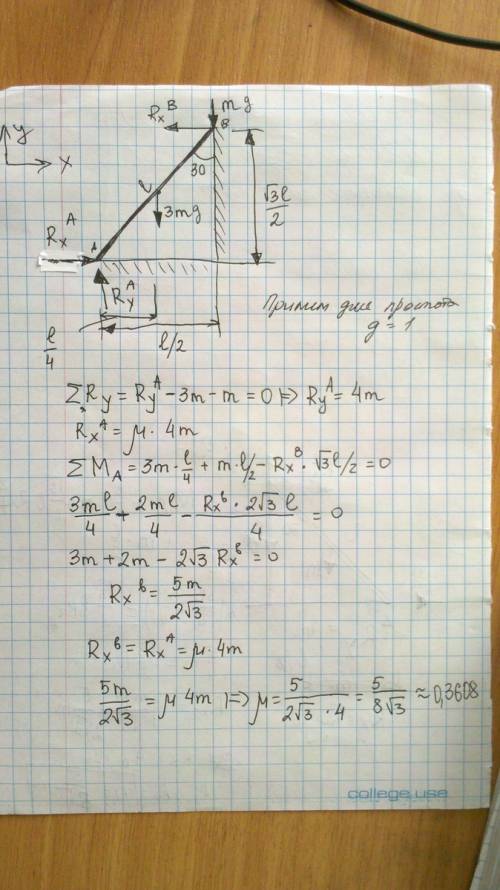 mg
R_x^B
B
y
30
x
l
√3l/2
3mg
R_x^A
A
R_y^A
Примем для простоты
g = 1
l/4
l/2
ΣR_y = R_y^A - 3m - m = 0 ⇒ R_y^A = 4m
R_x^A = μ · 4m
ΣM_A = 3m · l/4 + m · l/2 - R_x^B · √3l/2 = 0
3ml/4 + 2ml/4 - R_x^B · 2√3 l/4 = 0
3m + 2m - 2√3 R_x^B = 0
R_x^B = 5m/2√3
R_x^B = R_x^A = μ · 4m
5m/2√3 = μ 4m ⇒ μ = 5/2√3 · 4 = 5/8√3 ≈ 0,3608
college.use